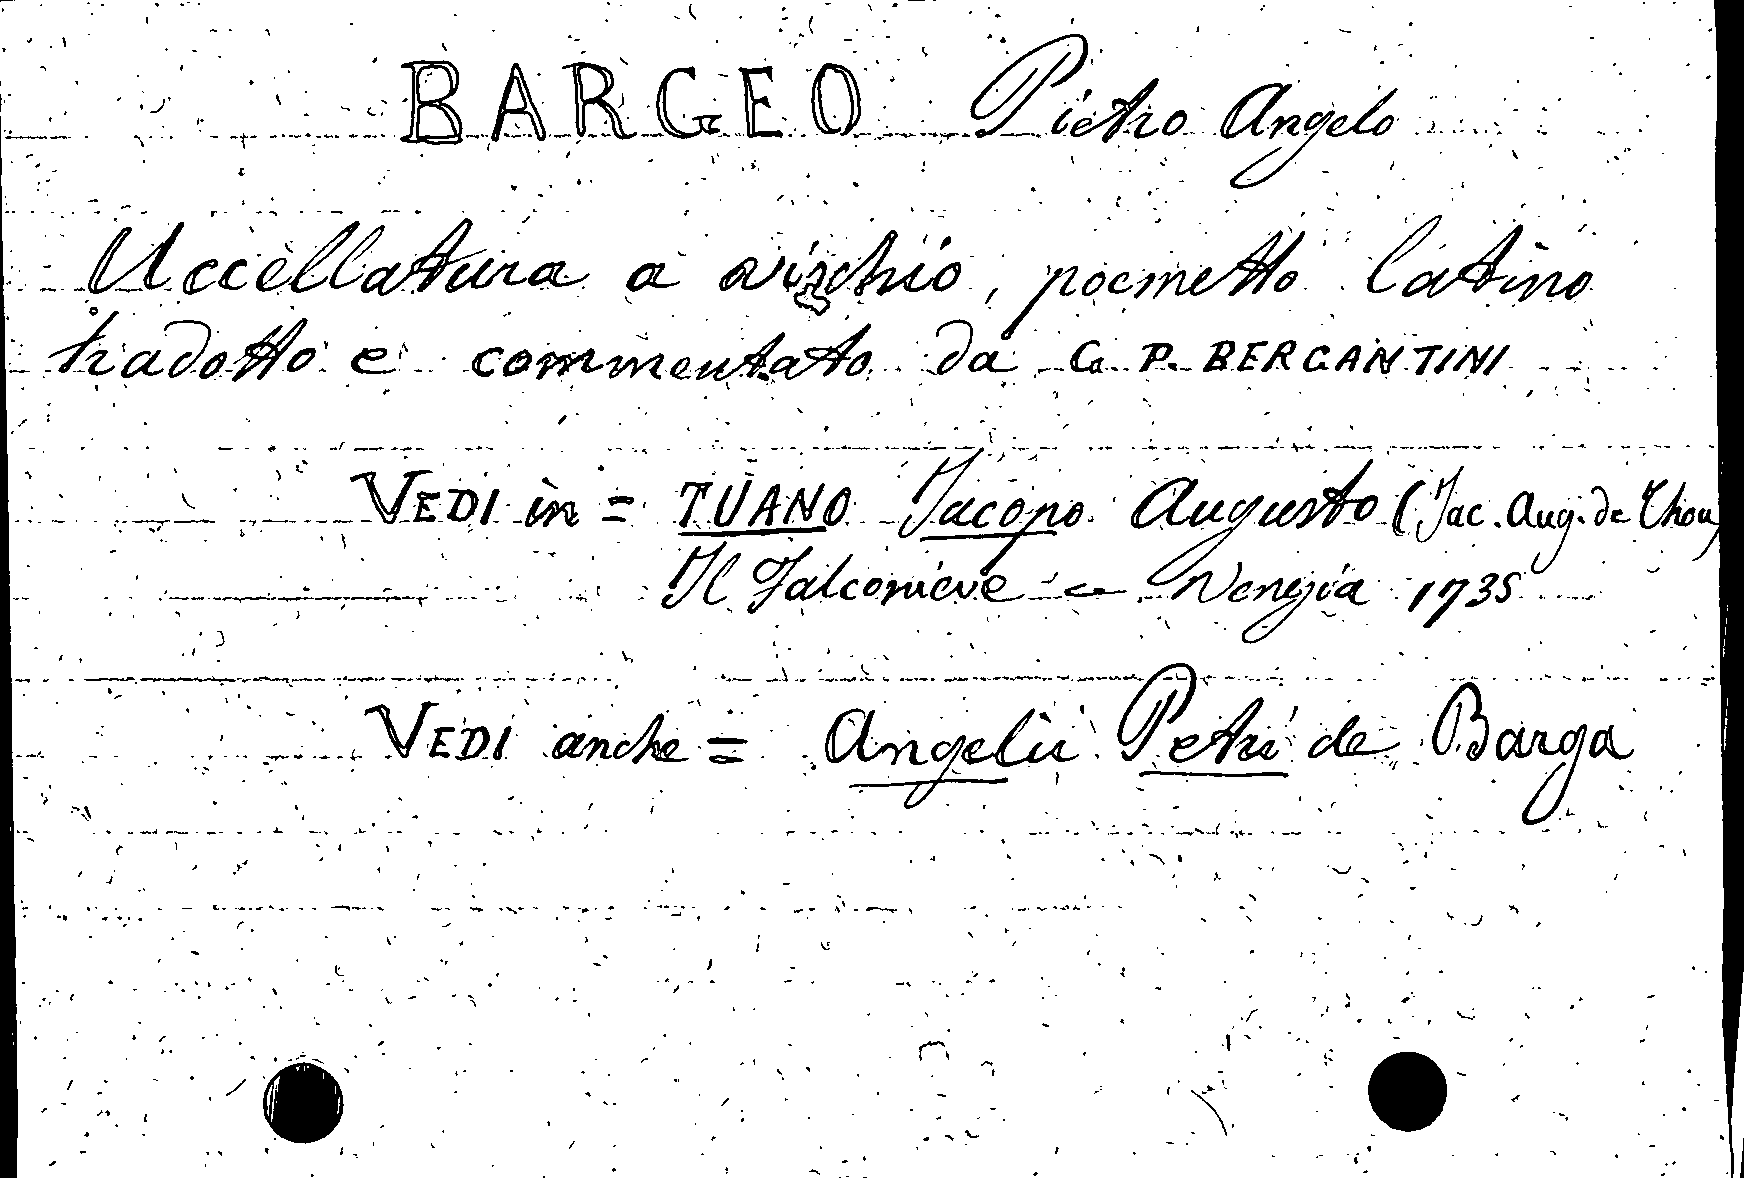 BARGEO Pietro Angelo
Uccellatura a vischio, poemetto latino
tradotto e commentato da G. P. BERGANTINI
VEDI in = TUANO Jacopo Augusto (Jac. Aug. de Thou)
Il Falconiere - Venezia 1735
VEDI anche = Angelii Petri de Barga